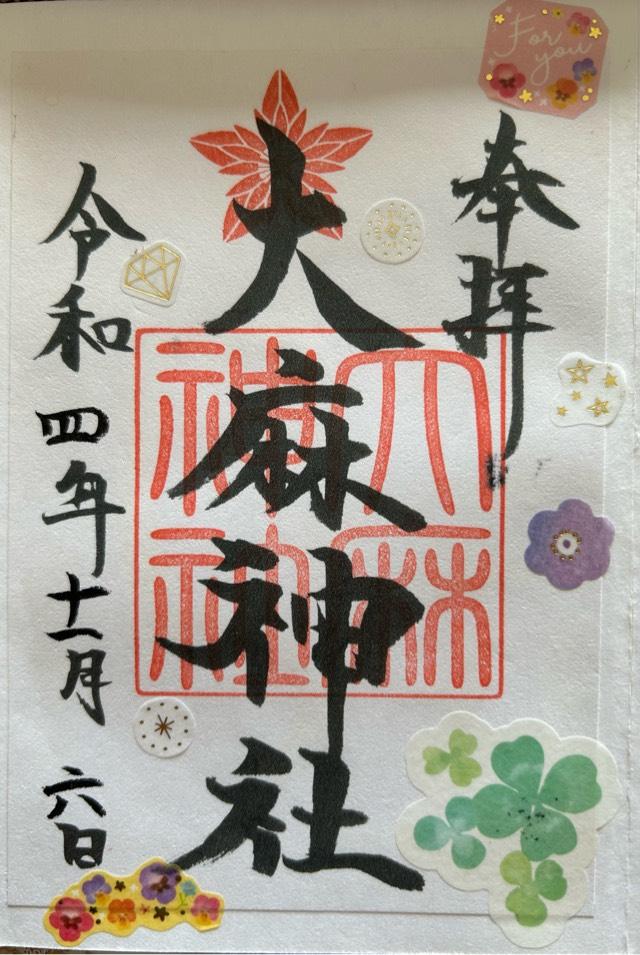 For you
奉拝
大麻神社
大麻神社
令和四年十一月六日